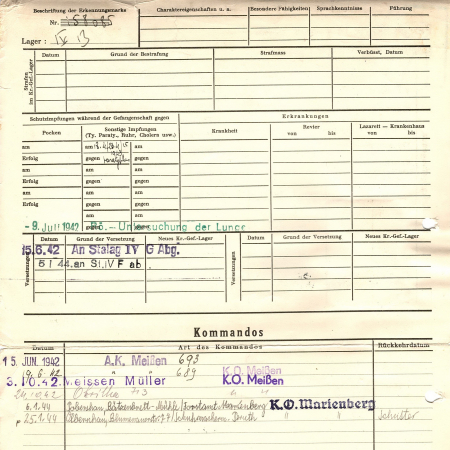 Beschriftung der Erkennungsmarke
Nr. 158685
Lager: IV B
Charaktereigenschaften u. a.
Besondere Fähigkeiten
Sprachkenntnisse
Führung
Strafen im Kr.-Gef.-Lager
Datum
Grund der Bestrafung
Strafmass
Verbüsst, Datum
Schutzimpfungen während der Gefangenschaft gegen
Erkrankungen
Pocken
Sonstige Impfungen
(Ty. Paraty., Ruhr, Cholera usw.)
Krankheit
Revier
von bis
Lazarett — Krankenhaus
von bis
am am am
Erfolg gegen gegen
am am am
Erfolg gegen gegen
am am am
Erfolg gegen gegen
- 9. Juli 1942 Rö.- Untersuchung der Lunge
Versetzungen
Datum
Grund der Versetzung
Neues Kr.-Gef.-Lager
Versetzungen
Datum
Grund der Versetzung
Neues Kr.-Gef.-Lager
15.6.42 An Stalag IV G Abg.
5 1 44 an St. IV F ab
Kommandos
Datum
Art des Kommandos
Rückkehrdatum
15. JUN. 1942 A.K. Meißen 693
9.6.42 " " 689 K.O. Meißen
3.10.42 Meissen Müller K.O. Meißen
6.1.44 K.O. Marienberg
25.1.44 Schuster